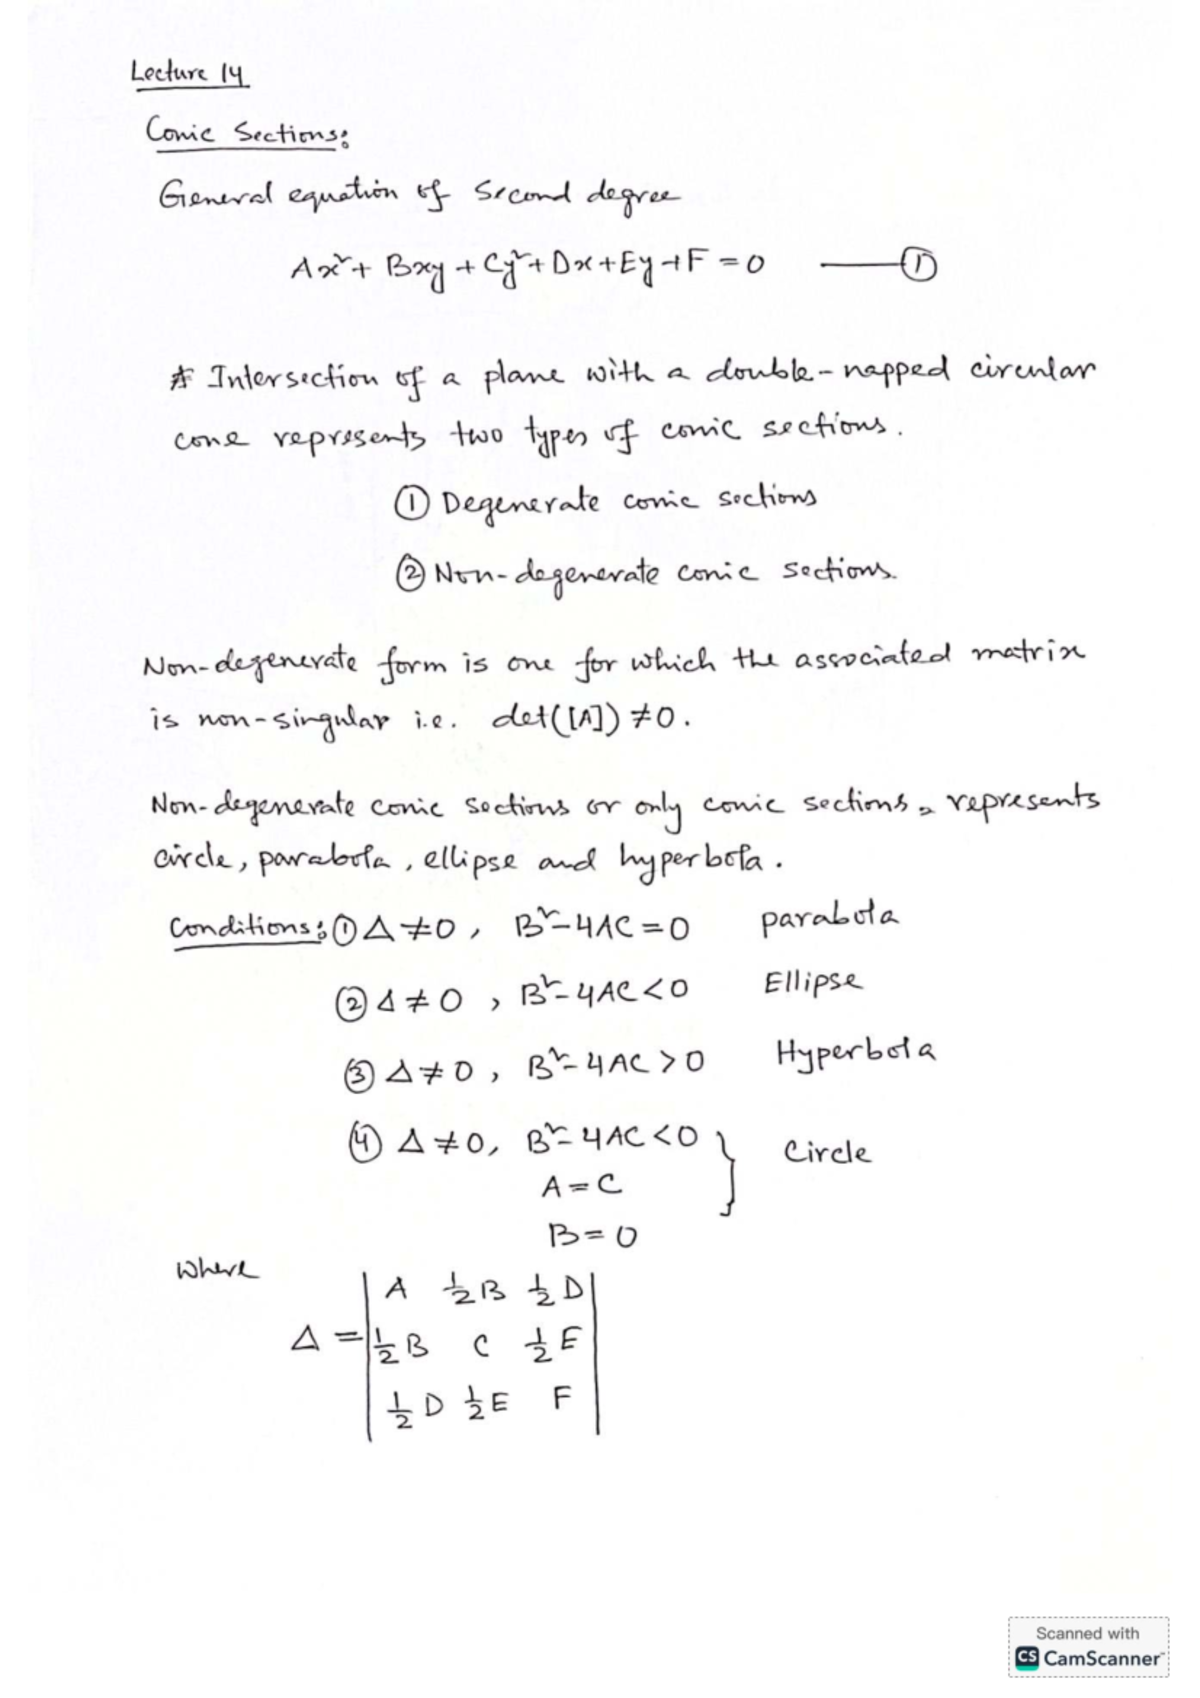 Lecture 14
Conic Sections:
General equation of Second degree
Ax² + Bxy + Cy² + Dx + Ey + F = 0 —— ①
* Intersection of a plane with a double-napped circular
cone represents two types of conic sections.
① Degenerate conic sections
② Non-degenerate conic sections.
Non-degenerate form is one for which the associated matrix
is non-singular i.e. det([A]) ≠ 0.
Non-degenerate conic sections or only conic sections, represents
circle, parabola, ellipse and hyperbola.
Conditions: ① Δ ≠ 0, B² - 4AC = 0 parabola
② Δ ≠ 0, B² - 4AC < 0 Ellipse
③ Δ ≠ 0, B² - 4AC > 0 Hyperbola
④ Δ ≠ 0, B² - 4AC < 0 } Circle
A = C
B = 0
Where
Δ = | A ½B ½D |
| ½B C ½E |
| ½D ½E F |
Scanned with
CS CamScanner